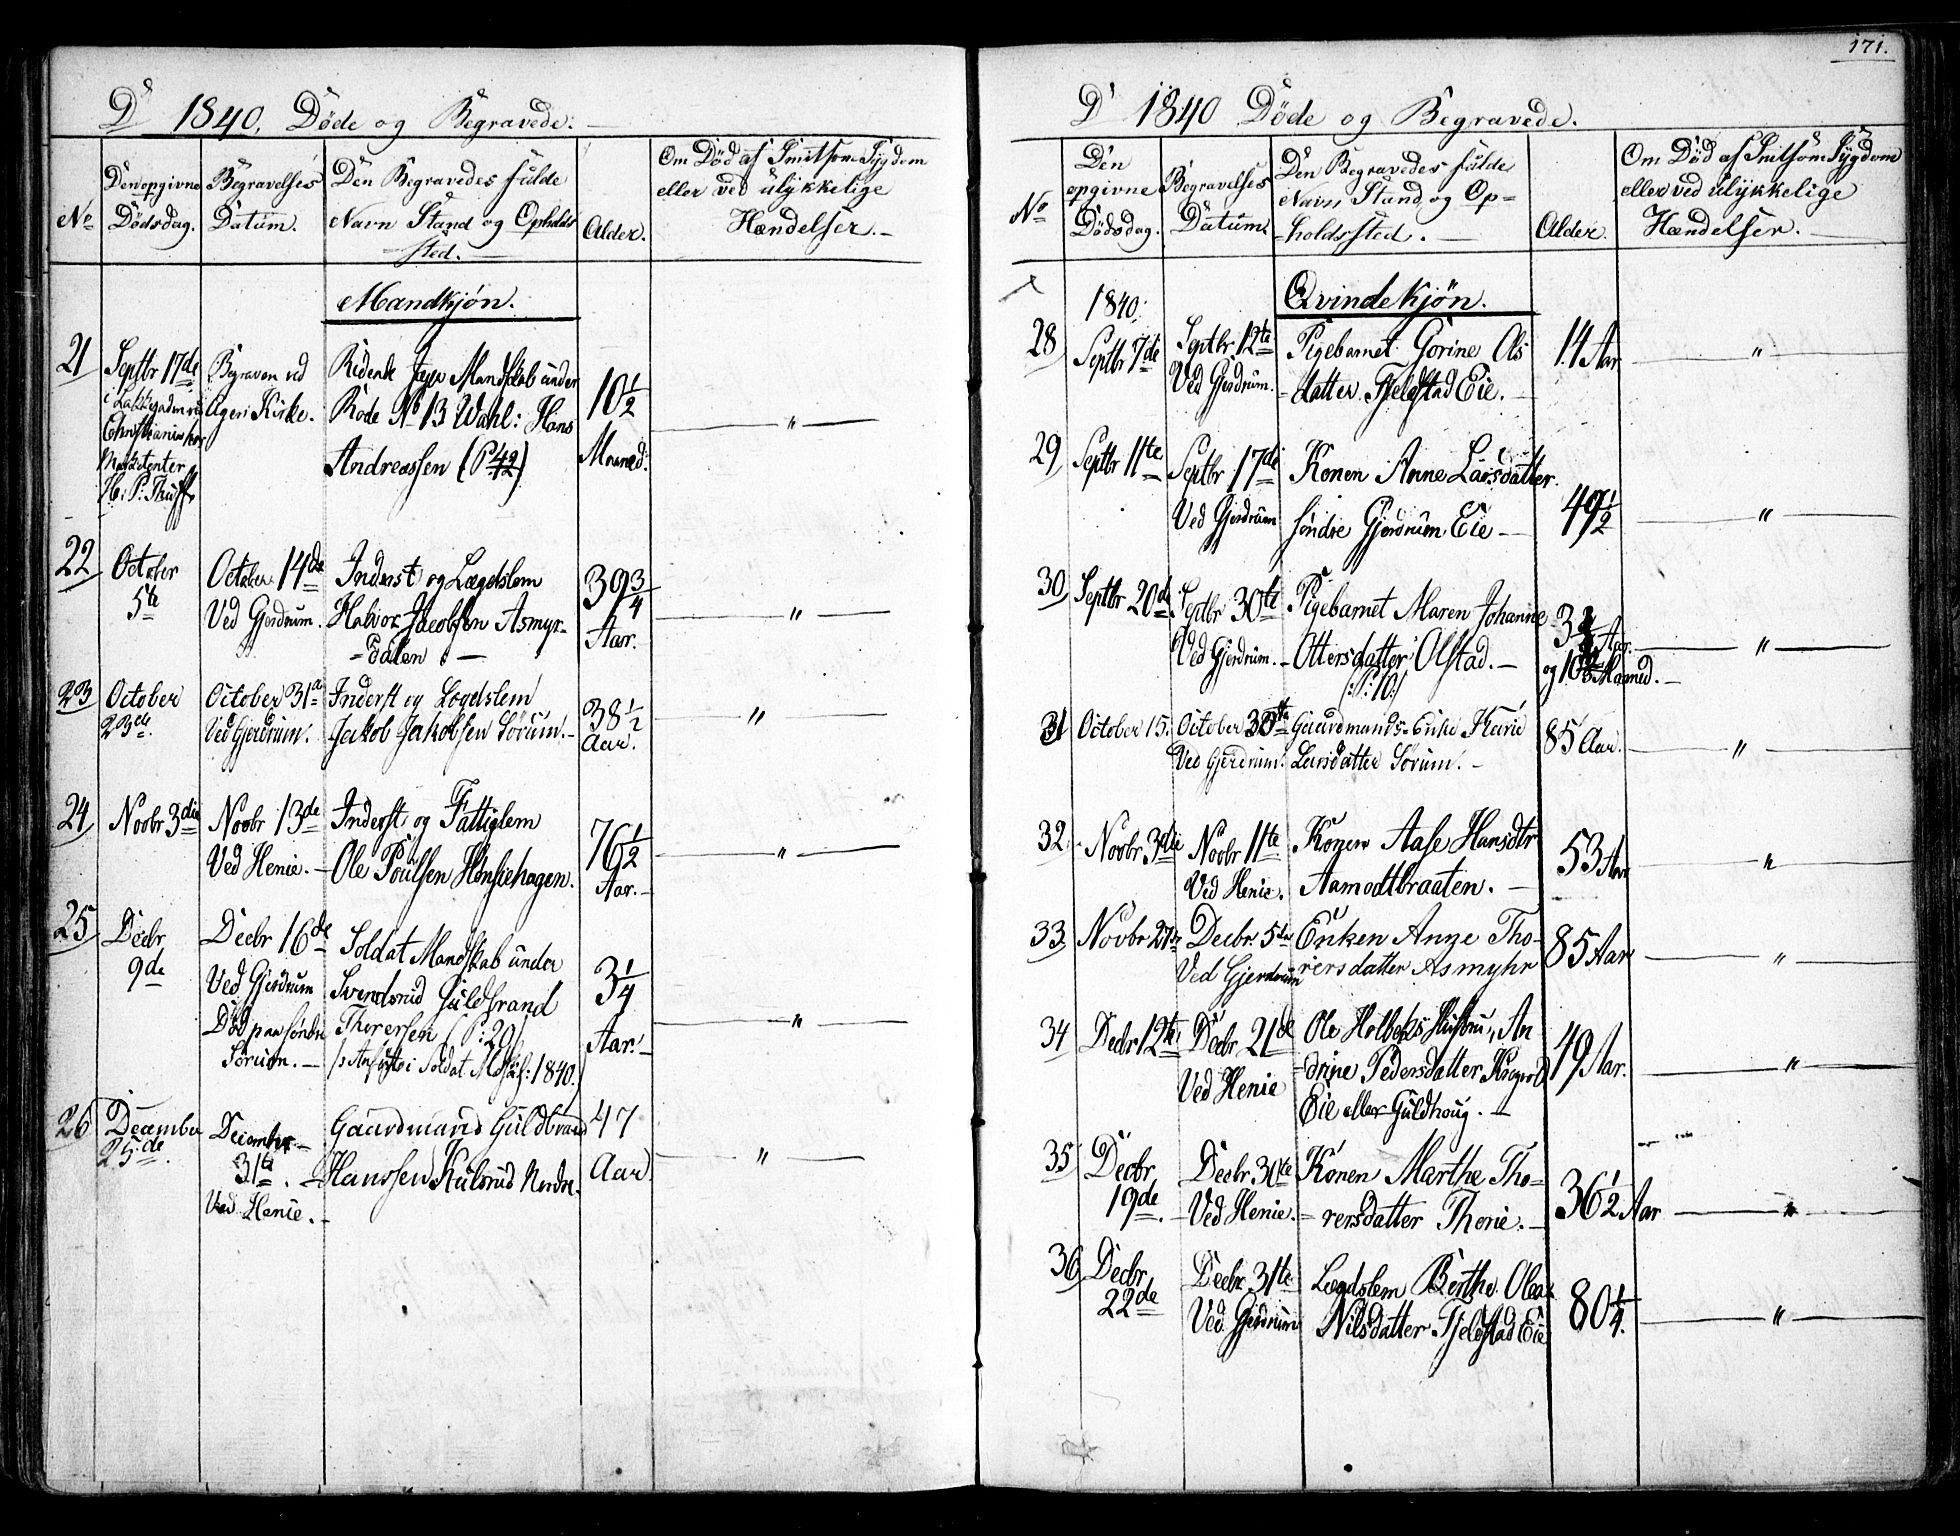 D 1840. Døde og Begravede.
No
Den opgivne
Dødsdag.
Begravelses
Datum.
Den Begravedes fulde
Navn Stand og Opholds
sted.
Alder.
Om Død af Smitsom Sygdom
eller ved ulykkelige
Hændelser.
Mandkjøn.
21
Septbr 17de
i
Christiania hos
Marketenter
H: P:
Begraven ved
Agers Kirke.
Ridende Jæger Mandskab under
Rode No 13 Wahl: Hans
Andreassen (P 42)
10 1/2
Maaned.
"
22
October
5te
October 14de
Ved Gjerdrum.
Inderst og Lægdslem
Halvor Jacobsen Asmyr-
=dalen.
39 3/4
Aar.
"
23
October
23de.
October 31te
Ved Gjerdrum.
Inderst og Lægdslem
Jakob Jakobsen Sørum.
38 1/2
Aar.
"
24
Novbr 3die
Novbr 13de
Ved Henie.
Inderst og Fattiglem
Ole Poulsen Hønsiehagen.
76 1/2
Aar.
"
25
Decbr
9de
Decbr 16de
Ved Gjerdrum
Død paa søndre
Sørum.
Soldat Mandskab under
Svendsrud Guldbrand
Thorersen (P: 20)
/: Anført i Soldat : 1840.)
3 1/4
Aar.
"
26
December
25de.
December
31te.
Ved Henie.
Gaardmand Guldbrand
Hanssen Kulsrud Nordre.
47
Aar
"
171.
D 1840 Døde og Begravede.
No
Den
opgivne
Dødsdag.
Begravelses
Datum.
Den Begravedes fulde
Navn Stand og Op=
=holdssted.
Alder.
Om Død af Smitsom Sygdom
eller ved ulykkelige
Hændelser.
1840.
Qvindekjøn.
28
Septbr 7de
Septbr. 12te
Ved Gjerdrum.
Pigebarnet Gorine Ols
=datter Fjeldstad Eie.
14 Aar
"
29
Septbr 11te
Septbr 17de
Ved Gjerdrum
Konen Anne Larsdatter
søndre Gjerdrum Eie
49 1/2
"
30
Septbr 20de.
Septbr 30te
Ved Gjerdrum.
Pigebarnet Maren Johanne
Ottersdatter Olstad.
(: P: 10:)
3 Aar.
og 10 Maaned.
"
31
October 15.
October 30te
Ved Gjerdrum.
Gaardmands-Enke Karie
Larsdatter Sørum.
85 Aar.
"
32.
Novbr 3die
Novbr 11te
Ved Henie.
Konen Aase Hansdtr
Aamodtbraaten.
53 Aar
"
33.
Novbr 27de
Decbr. 5te
Ved Gjerdrum
Enken Anne Tho-
rersdatter Asmyhr
85 Aar
"
34
Decbr 12te
Decbr 21de
Ved Henie
Ole Holbeks Hustru, An
=drine Pedersdatter Kogsrød
Eie eller Guldhoug.
49 Aar.
"
35
Decbr
19de.
Decbr. 30te
Ved Henie.
Konen Marthe Tho=
=rersdatter Thorie.
36 1/2 Aar
"
36
Decbr
22de
Decbr 31te
Ved Gjerdrum
Lægdslem Berthe Olea
Nilsdatter Fjeldstad Eie
80 1/4.
"